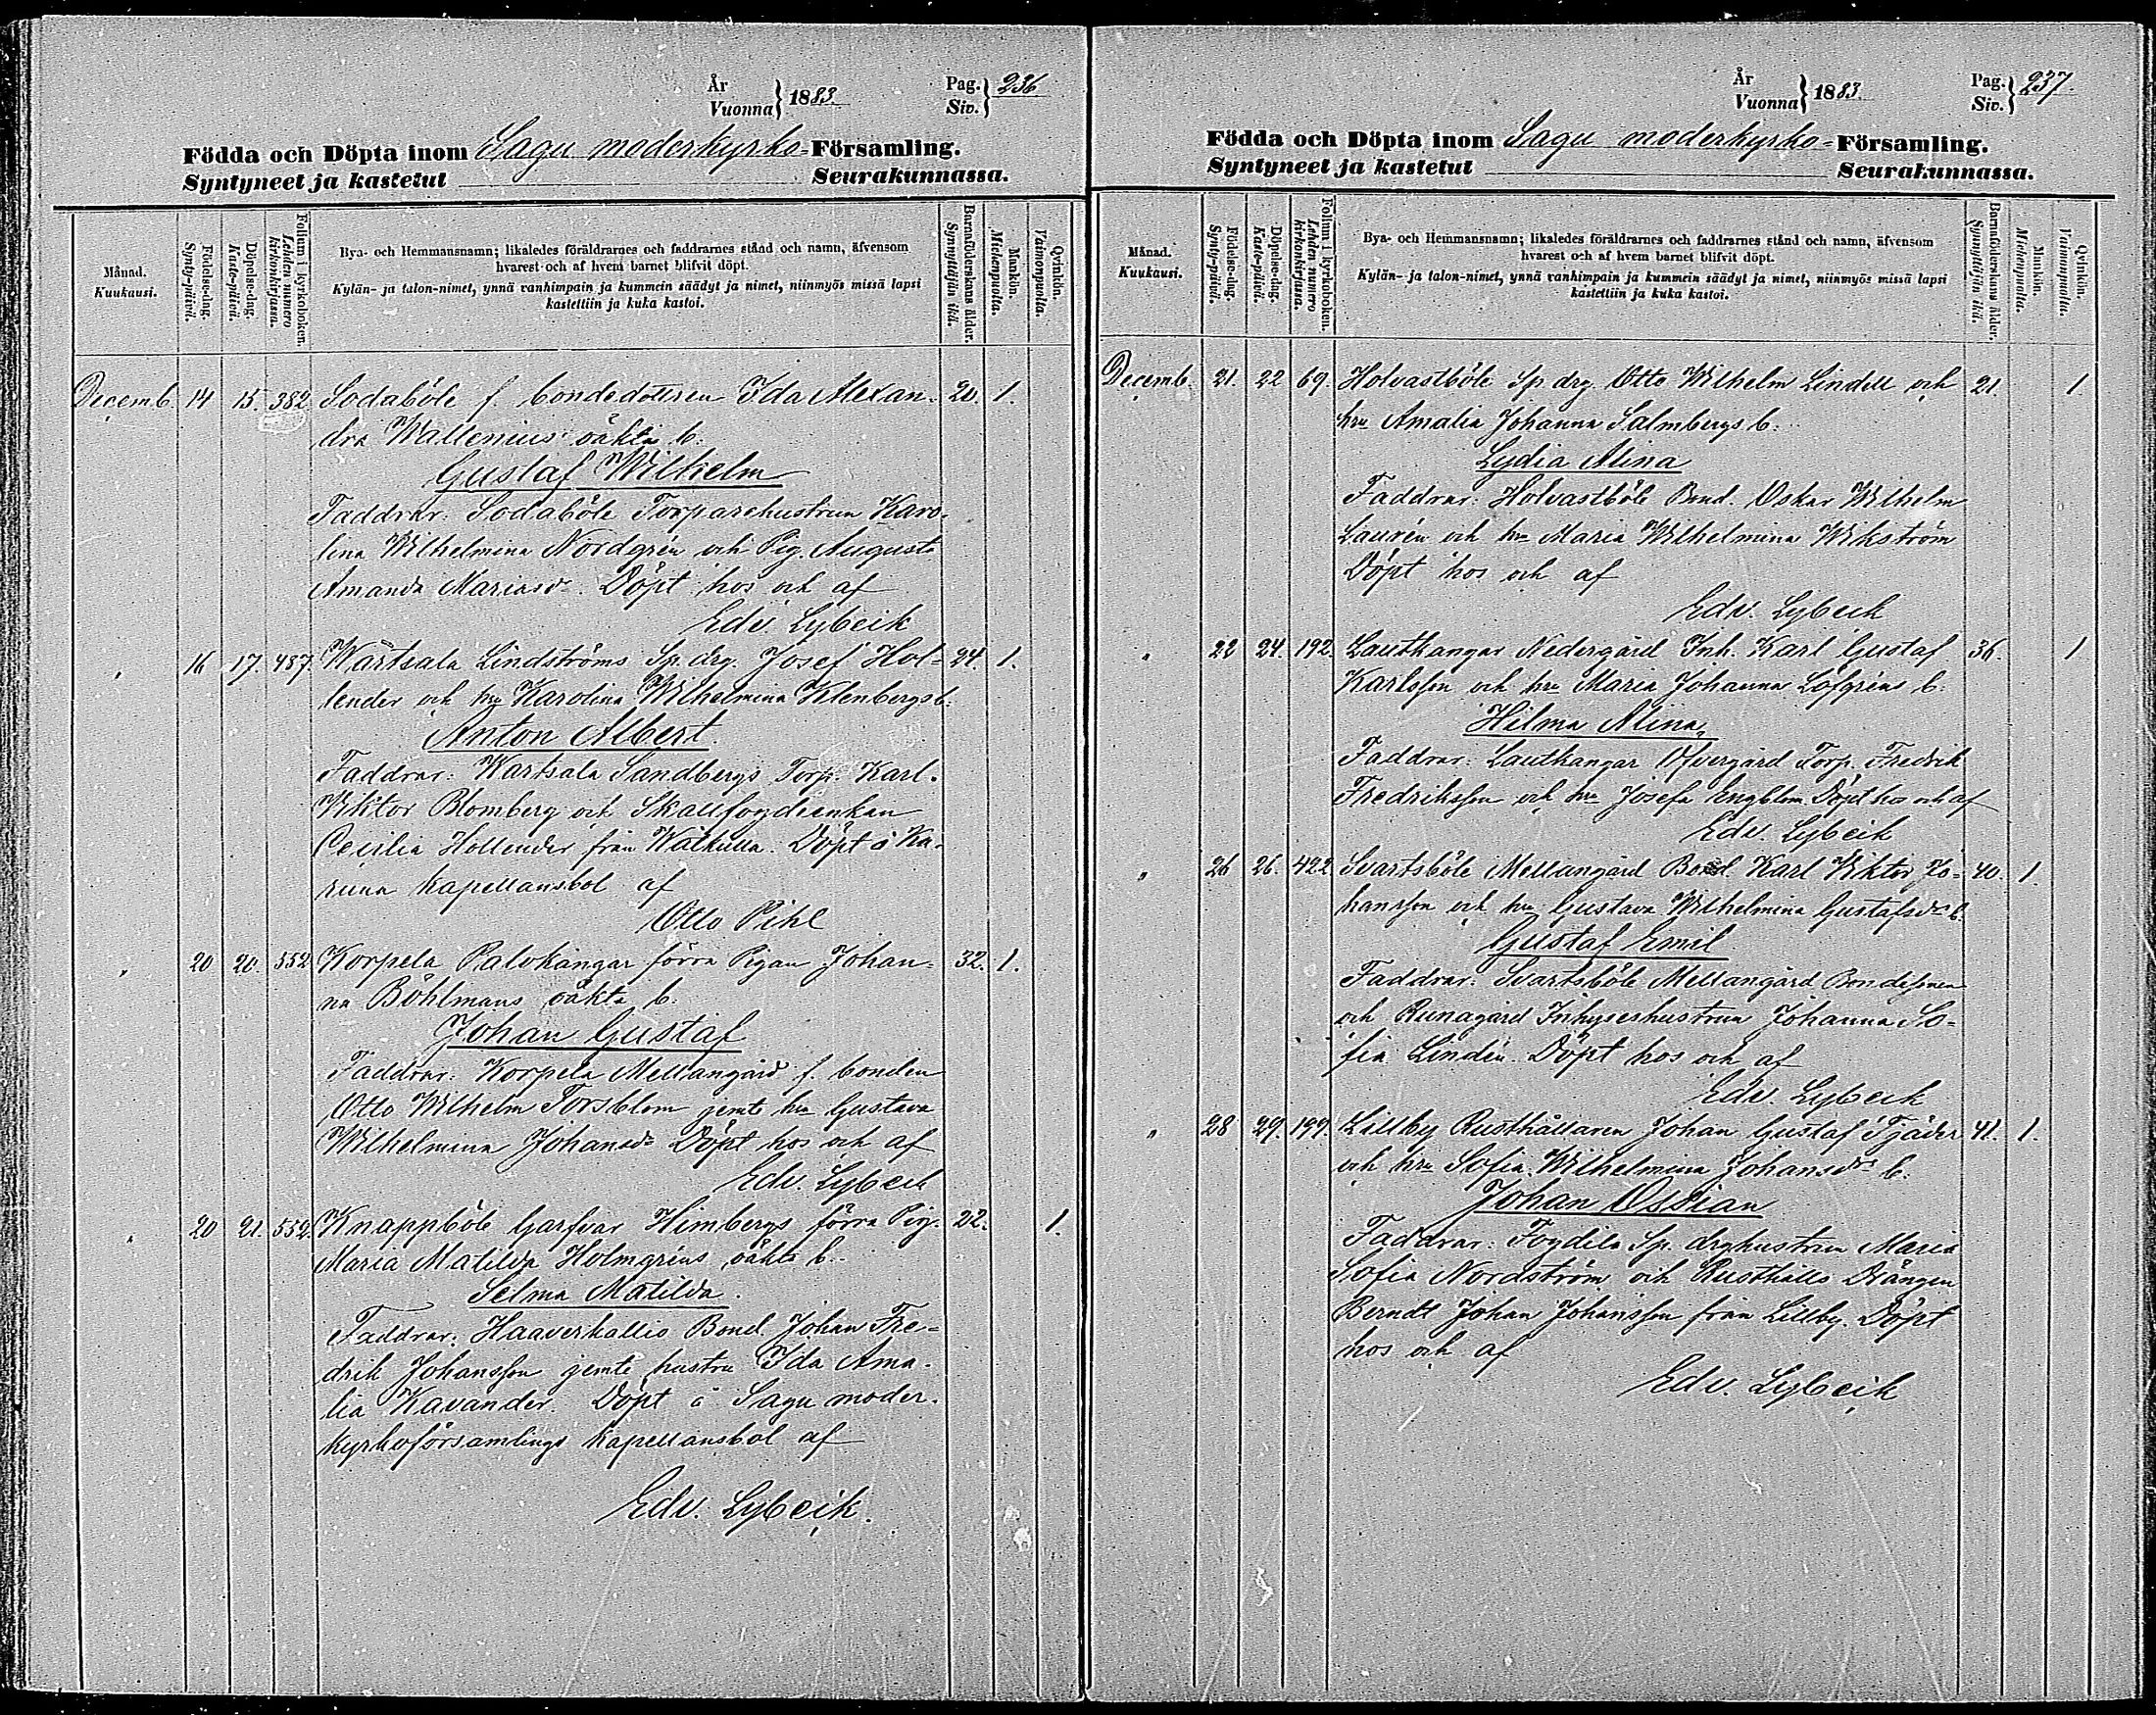 År
Vuonna } 1883.
Pag.
Siv. } 236
Födda och Döpta inom Sagu moderkyrko-Församling.
Syntyneet ja kastetut Seurakunnassa.
Månad.
Kuukausi.
Födelse-dag.
Synty-päivä.
Döpelse-dag.
Kaste-päivä.
Folium i kyrkoboken.
Lehden numero
kirkonkirjassa.
Bya- och Hemmansnamn; likaledes föräldrarnes och faddrarnes stånd och namn, äfvensom
hvarest och af hvem barnet blifvit döpt.
Kylän- ja talon-nimet, ynnä vanhimpain ja kummein säädyt ja nimet, niinmyös missä lapsi
kastettiin ja kuka kastoi.
Barnaföderskans ålder.
Synnyttäjän ikä.
Mankön.
Miehenpuolta.
Qvinkön.
Vaimonpuolta.
Decemb. 14 15. 382 Sodaböle f. bondedottren Ida Alexan- 20. 1.
dra Wallenius' oäkta b.
Gustaf Wilhelm
Faddrar: Sodaböle Torparehustrun Karo-
lina Wilhelmina Nordgrén och Pig. Augusta
Amanda Mariasdr. Döpt hos och af
Edv. Lybeck
" 16 17. 487. Wartsala Lindströms Sp. drg. Josef Hol- 24. 1.
lender och hru Karolina Wilhelmina Klenbergs b.
Anton Albert.
Faddrar: Wartsala Sandbergs Torp. Karl
Wiktor Blomberg och Skallfogdeenkan
Cecilia Hollender från Walkulla. Döpt å Ka-
runa kapellansbol af
Otto Pihl
" 20 20. 552 Korpela Palokangar förra Pigan Johan- 32. 1.
na Böhlmans oäkta b.
Johan Gustaf
Faddrar: Korpela Mellangård f. bonden
Otto Wilhelm Forsblom jemte hru Gustava
Wilhelmina Johansdr Döpt hos och af
Edv. Lybeck
" 20 21. 552. Knappböle Garfvar Himbergs förra Pig. 22. 1.
Maria Matilda Holmgréns oäkta b.
Selma Matilda.
Faddrar: Haaverkallio Bond. Johan Fre-
drik Johansson jemte hustru Ida Ama-
lia Kavander. Döpt å Sagu moder-
kyrkoförsamlings kapellansbol af
Edv. Lybeck.
År
Vuonna } 1883.
Pag.
Siv. } 237.
Födda och Döpta inom Sagu moderkyrko-Församling.
Syntyneet ja kastetut Seurakunnassa.
Månad.
Kuukausi.
Födelse-dag.
Synty-päivä.
Döpelse-dag.
Kaste-päivä.
Folium i kyrkoboken.
Lehden numero
kirkonkirjassa.
Bya- och Hemmansnamn; likaledes föräldrarnes och faddrarnes stånd och namn, äfvensom
hvarest och af hvem barnet blifvit döpt.
Kylän- ja talon-nimet, ynnä vanhimpain ja kummein säädyt ja nimet, niinmyös missä lapsi
kastettiin ja kuka kastoi.
Barnaföderskans ålder.
Synnyttäjän ikä.
Mankön.
Miehenpuolta.
Qvinkön.
Vaimonpuolta.
Decemb. 21. 22 69. Holvastböle Sp drg. Otto Wilhelm Lindell och 21. 1.
hru Amalia Johanna Salmbergs b.
Lydia Alina
Faddrar: Holvastböle Bond. Oskar Wilhelm
Laurén och hru Maria Wilhelmina Wikström
Döpt hos och af
Edv. Lybeck
" 22 24. 192. Lautkangar Nedergård Inh. Karl Gustaf 36. 1
Karlsson och hru Maria Johanna Löfgréns b.
Hilma Alina,
Faddrar: Lautkangar Öfvergård Torp. Fredrik
Fredriksson och hru Josefa Engblom. Döpt hos och af
Edv. Lybeck
" 26 26. 422 Svartsböle Mellangård Bond. Karl Viktor Jo- 40. 1.
hansson och hru Gustava Wilhelmina Gustafsdrs b.
Gustaf Emil
Faddrar: Svartsböle Mellangård Bondesonen
och Runagård Inhyseshustrun Johanna So-
fia Lindén. Döpt hos och af
Edv. Lybeck
" 28 29. 199. Lillby Rusthållaren Johan Gustaf Tjäder 41. 1.
och hru Sofia Wilhelmina Johansdrs b.
Johan Ossian
Faddrar: Fogdila Sp. drghustrun Maria
Sofia Nordström och Rusthålls Drängen
Berndt Johan Johansson från Lillby. Döpt
hos och af
Edv. Lybeck